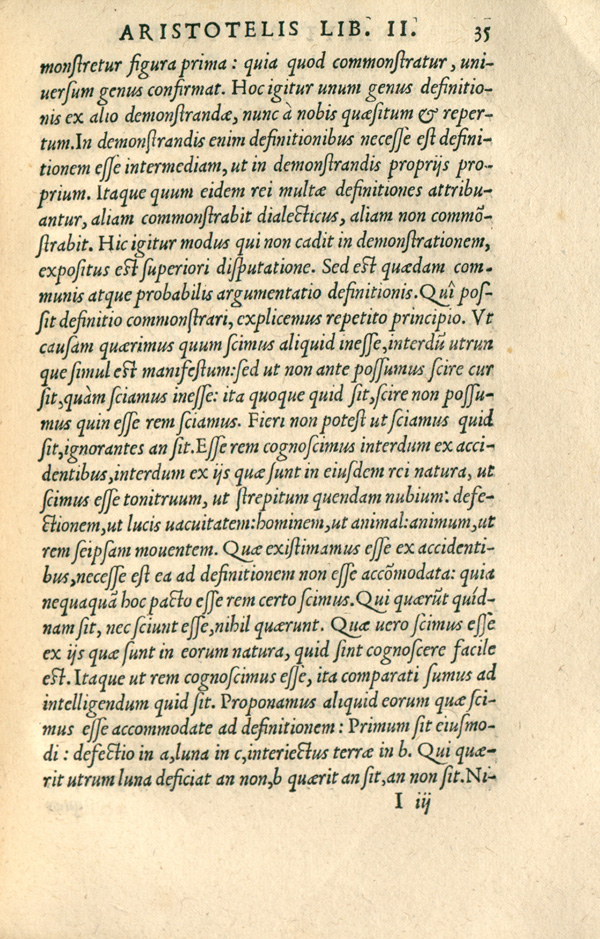 ARISTOTELIS LIB. II. 35
monſtretur figura prima : quia quod commonſtratur, uni-
uerſum genus confirmat. Hoc igitur unum genus definitio-
nis ex alio demonſtrandæ, nunc à nobis quæſitum & reper-
tum. In demonſtrandis enim definitionibus neceſſe eſt defini-
tionem eſſe intermediam, ut in demonſtrandis proprijs pro-
prium. Itaque quum eidem rei multæ definitiones attribu-
antur, aliam commonſtrabit dialecticus, aliam non commõ-
ſtrabit. Hic igitur modus qui non cadit in demonſtrationem,
expoſitus eſt ſuperiori diſputatione. Sed eſt quædam com-
munis atque probabilis argumentatio definitionis. Quî poſ-
ſit definitio commonſtrari, explicemus repetito principio. Vt
cauſam quærimus quum ſcimus aliquid ineſſe, interdũ utrun
que ſimul eſt manifeſtum: ſed ut non ante poſſumus ſcire cur
ſit, quàm ſciamus ineſſe: ita quoque quid ſit, ſcire non poſſu-
mus quin eſſe rem ſciamus. Fieri non poteſt ut ſciamus quid
ſit, ignorantes an ſit. Eſſe rem cognoſcimus interdum ex acci-
dentibus, interdum ex ijs quæ ſunt in eiuſdem rei natura, ut
ſcimus eſſe tonitruum, ut ſtrepitum quendam nubium: defe-
ctionem, ut lucis uacuitatem: hominem, ut animal: animum, ut
rem ſeipſam mouentem. Quæ exiſtimamus eſſe ex accidenti-
bus, neceſſe eſt ea ad definitionem non eſſe accõmodata: quia
nequaquã hoc pacto eſſe rem certo ſcimus. Qui quærũt quid-
nam ſit, nec ſciunt eſſe, nihil quærunt. Quæ uero ſcimus eſſe
ex ijs quæ ſunt in eorum natura, quid ſint cognoſcere facile
eſt. Itaque ut rem cognoſcimus eſſe, ita comparati ſumus ad
intelligendum quid ſit. Proponamus aliquid eorum quæ ſci-
mus eſſe accommodate ad definitionem : Primum ſit eiuſmo-
di : defectio in a, luna in c, interiectus terræ in b. Qui quæ-
rit utrum luna deficiat an non, b quærit an ſit, an non ſit. Ni-
I iij